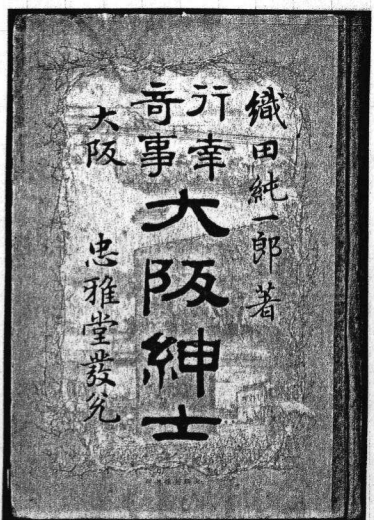 織田純一郎著
行幸
奇事
大阪紳士
大阪 忠雅堂發兌